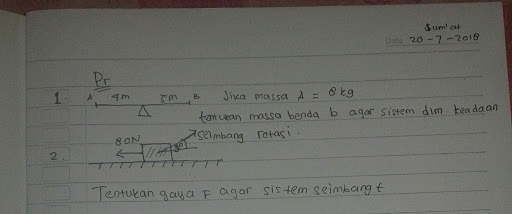 Jum'at
Date 20-7-2018
Pr
1. A 4m 5m B Jika massa A = 8 kg
tentukan massa benda b agar sistem dlm keadaan
seimbang rotasi.
2. 80N
Tentukan gaya F agar sistem seimbang t